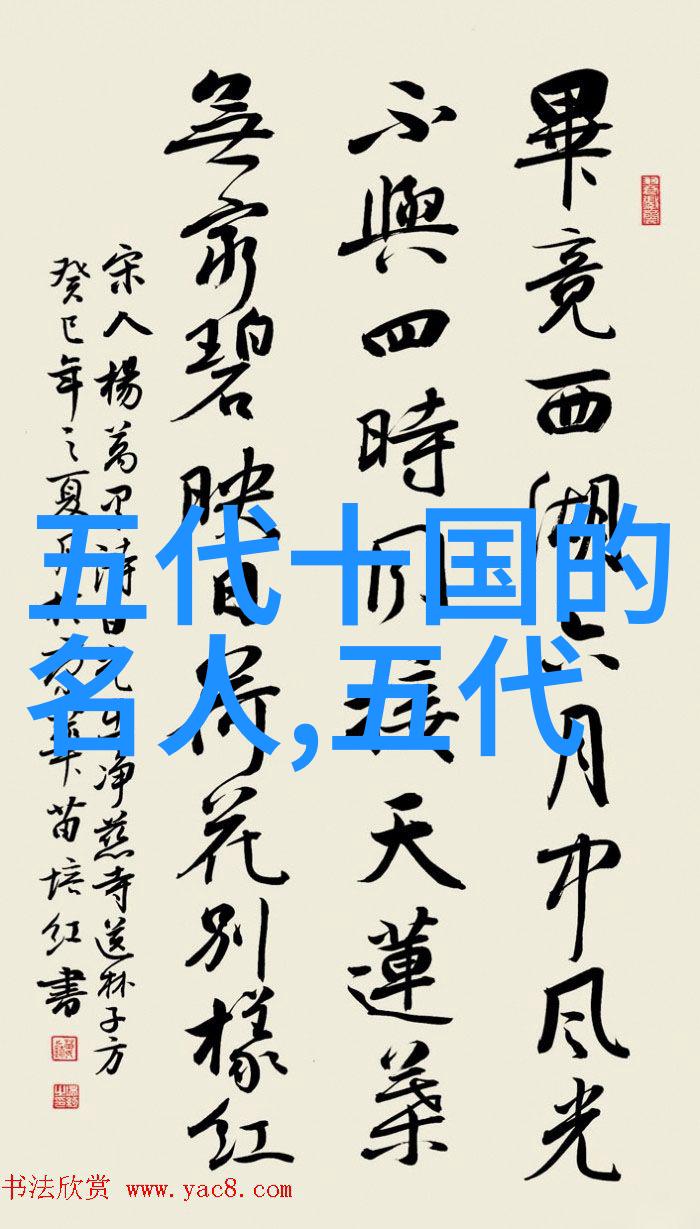 畢竟西湖六月中风光
不與四時同接天蓮葉
無窮碧映日荷花别樣红
宋人楊萬里詩出净慈寺送林子方
癸巳年之夏月於苗培红書
五代十国的
名人,五代
书法欣赏 www.yac8.com